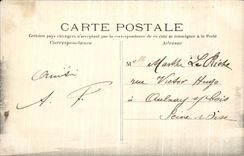 CARTE POSTALE
Certains pays étrangers n'acceptent pas la correspondance de ce côté se renseigner à la Poste
Correspondance
Adresse
Amitié
A. F.
Mlle Marthe Le Riche
rue Victor Hugo
à Aulnay s/ Bois
Seine & Oise